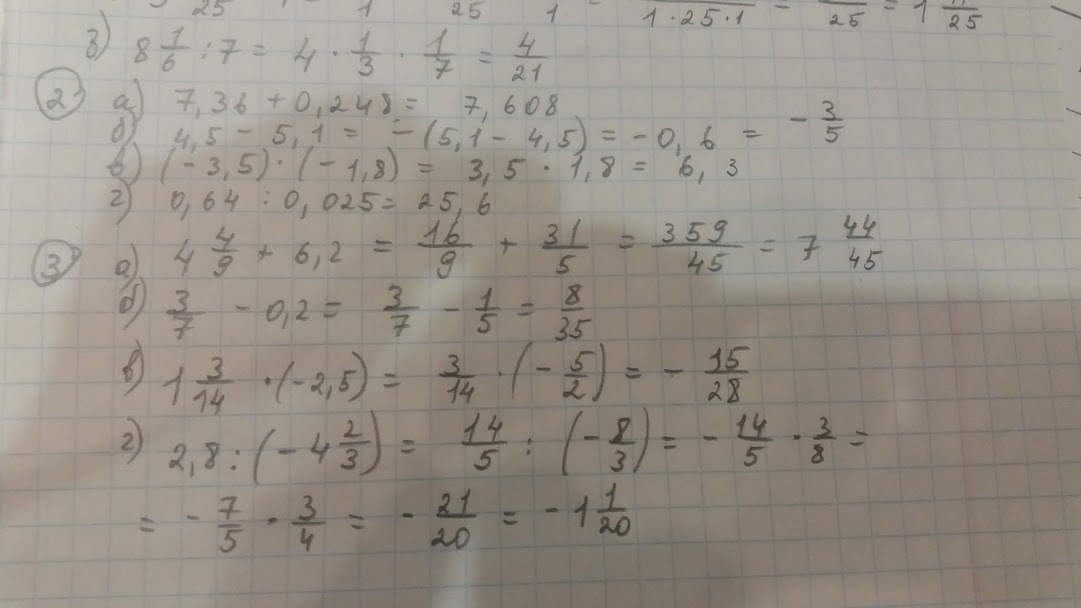 25 1 25 1 1·25·1 = 25 = 1 11/25
з) 8 1/6 : 7 = 4 · 1/3 · 1/7 = 4/21
2 а) 7,36 + 0,248 = 7,608
б) 4,5 - 5,1 = -(5,1 - 4,5) = -0,6 = -3/5
в) (-3,5) · (-1,8) = 3,5 · 1,8 = 6,3
г) 0,64 : 0,025 = 25,6
3 а) 4 4/9 + 6,2 = 16/9 + 31/5 = 359/45 = 7 44/45
б) 3/7 - 0,2 = 3/7 - 1/5 = 8/35
в) 1 3/14 · (-2,5) = 3/14 · (-5/2) = -15/28
г) 2,8 : (-4 2/3) = 14/5 : (-8/3) = -14/5 · 3/8 =
= -7/5 · 3/4 = -21/20 = -1 1/20